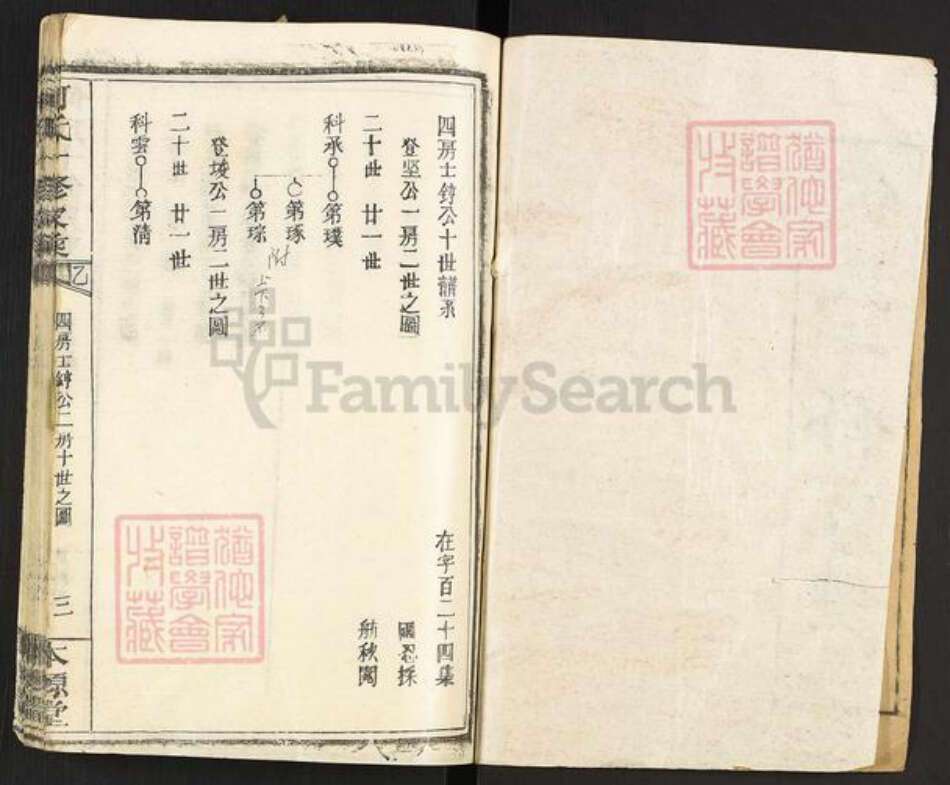 四房士錞公十世講承
在字百二十四集
登堅公一房二世之圖
國忍採
二十世 廿一世
舫秋閱
科承 第璞
第琢
附
第琮
登堎公一房二世之圖
二十世 廿一世
科雲 第清
何氏一修家乘
乙
四房士錞公二房十世之圖
三
本源堂
猶他家
譜學會
收藏
猶他家
譜學會
收藏
FamilySearch